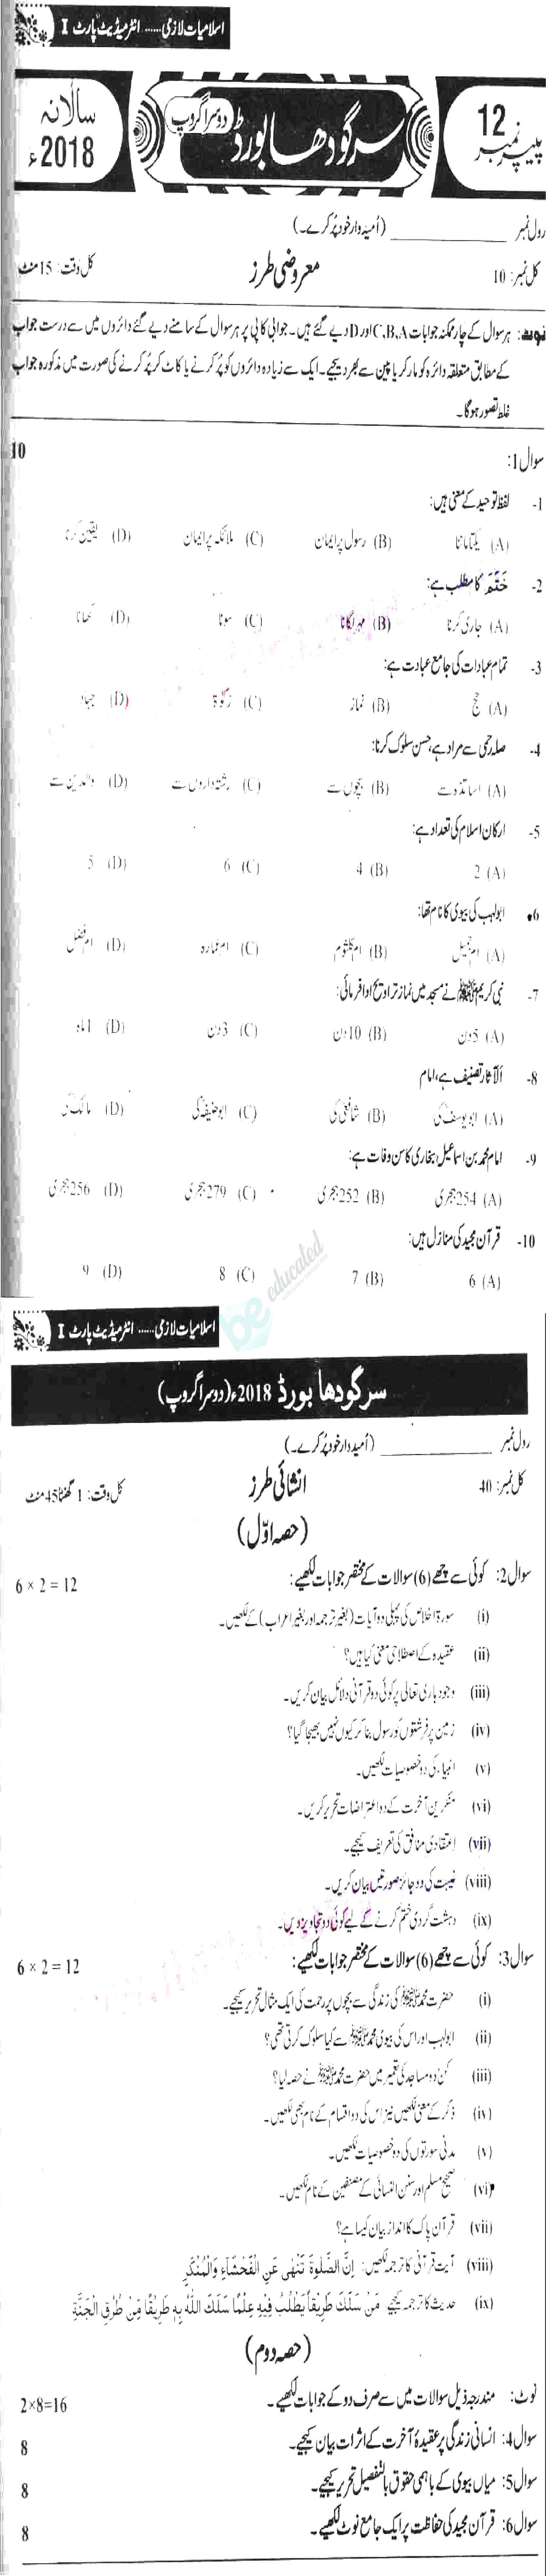 اسلامیات لازمی ..... انٹرمیڈیٹ پارٹ I
پیپر نمبر 12
سرگودھا بورڈ دوسرا گروپ
سالانہ 2018ء
رول نمبر ____________ (اُمیدوار خود پُر کرے۔)
کل نمبر: 10 معروضی طرز کل وقت: 15 منٹ
نوٹ: ہر سوال کے چار ممکنہ جوابات C,B,A اور D دیے گئے ہیں۔ جوابی کاپی پر ہر سوال کے سامنے دیے گئے دائروں میں سے درست جواب
کے مطابق متعلقہ دائرہ کو مارکر یا پین سے بھر دیجیے۔ ایک سے زیادہ دائروں کو پُر کرنے یا کاٹ کر پُر کرنے کی صورت میں مذکورہ جواب
غلط تصور ہوگا۔
سوال 1: 10
1- لفظ توحید کے معنی ہیں:
(A) یکتا ماننا (B) رسول پر ایمان (C) ملائکہ پر ایمان (D) یقین کرنا
2- خَتَمَ کا مطلب ہے:
(A) جاری کرنا (B) مہر لگانا (C) سونا (D) کھانا
3- تمام عبادات کی جامع عبادت ہے:
(A) حج (B) نماز (C) زکوٰۃ (D) جہاد
4- صلہ رحمی سے مراد ہے، حسن سلوک کرنا:
(A) اساتذہ سے (B) بچوں سے (C) رشتہ داروں سے (D) والدین سے
5- ارکان اسلام کی تعداد ہے:
(A) 2 (B) 4 (C) 6 (D) 5
6- ابولہب کی بیوی کا نام تھا:
(A) ام جمیل (B) ام کلثوم (C) ام عمارہ (D) ام فضل
7- نبی کریم ﷺ نے مسجد میں نماز تراویح ادا فرمائی:
(A) 5 دن (B) 10 دن (C) 3 دن (D) 1 ماہ
8- الآثار تصنیف ہے، امام
(A) ابو یوسف کی (B) شافعی کی (C) ابو حنیفہ کی (D) مالک کی
9- امام محمد بن اسماعیل بخاری کا سن وفات ہے:
(A) 254 ہجری (B) 252 ہجری (C) 279 ہجری (D) 256 ہجری
10- قرآن مجید کی منازل ہیں:
(A) 6 (B) 7 (C) 8 (D) 9
be educated
اسلامیات لازمی ..... انٹرمیڈیٹ پارٹ I
سرگودھا بورڈ 2018ء (دوسرا گروپ)
رول نمبر ____________ (اُمیدوار خود پُر کرے۔)
کل نمبر: 40 انشائی طرز کل وقت: 1 گھنٹا 45 منٹ
(حصہ اوّل)
سوال 2: کوئی سے چھے (6) سوالات کے مختصر جوابات لکھیے: 6 × 2 = 12
(i) سورۃ اخلاص کی پہلی دو آیات (بغیر ترجمہ اور بغیر اعراب) کے لکھیں۔
(ii) عقیدہ کے اصطلاحی معنی کیا ہیں؟
(iii) وجود باری تعالیٰ پر کوئی دو قرآنی دلائل بیان کریں۔
(iv) زمین پر فرشتوں کو رسول بنا کر کیوں نہیں بھیجا گیا؟
(v) انبیاء کی دو خصوصیات لکھیں۔
(vi) منکرین آخرت کے دو اعتراضات تحریر کریں۔
(vii) اعتقادی منافق کی تعریف کیجیے۔
(viii) غیبت کی دو جائز صورتیں بیان کریں۔
(ix) دہشت گردی ختم کرنے کے لیے کوئی دو تجاویز دیں۔
سوال 3: کوئی سے چھے (6) سوالات کے مختصر جوابات لکھیے: 6 × 2 = 12
(i) حضرت محمد ﷺ کی زندگی سے بچوں پر رحمت کی ایک مثال تحریر کیجیے۔
(ii) ابولہب اور اس کی بیوی محمد ﷺ سے کیا سلوک کرتی تھی؟
(iii) کن دو مساجد کی تعمیر میں حضرت محمد ﷺ نے حصہ لیا؟
(iv) ذکر کے معنی لکھیں نیز اس کی دو اقسام کے نام بھی لکھیں۔
(v) مدنی سورتوں کی دو خصوصیات لکھیں۔
(vi) صحیح مسلم اور سنن النسائی کے مصنفین کے نام لکھیں۔
(vii) قرآن پاک کا انداز بیان کیسا ہے؟
(viii) آیت قرآنی کا ترجمہ لکھیں: اِنَّ الصَّلٰوةَ تَنْهٰى عَنِ الْفَحْشَآءِ وَالْمُنْكَرِ
(ix) حدیث کا ترجمہ کیجیے مَنْ سَلَكَ طَرِيقًا يَطْلُبُ فِيْهِ عِلْمًا سَلَكَ اللّٰهُ بِهٖ طَرِيْقًا مِّنْ طُرُقِ الْجَنَّةِ
(حصہ دوم)
نوٹ: مندرجہ ذیل سوالات میں سے صرف دو کے جوابات لکھیے۔ 2×8=16
سوال 4: انسانی زندگی پر عقیدۂ آخرت کے اثرات بیان کیجیے۔ 8
سوال 5: میاں بیوی کے باہمی حقوق بالتفصیل تحریر کیجیے۔ 8
سوال 6: قرآن مجید کی حفاظت پر ایک جامع نوٹ لکھیے۔ 8